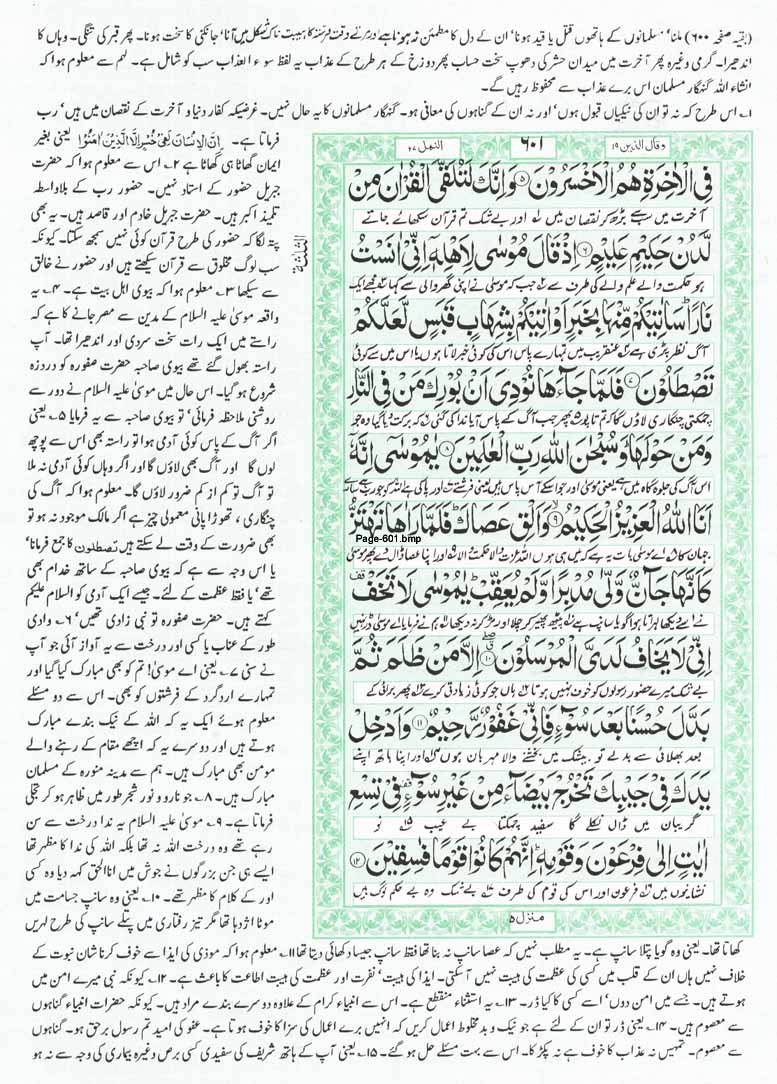 (بقیہ صفحہ ۶۰۰) ملنا' مسلمانوں کے ہاتھوں قتل یا قید ہونا' ان کے دل کا مطمئن نہ ہونا ہے اور مرتے وقت فرشتہ کا ہیبت ناک شکل میں آنا' جانکنی کا سخت ہونا۔ پھر قبر کی تنگی۔ وہاں کا
اندھیرا۔ گرمی وغیرہ پھر آخرت میں میدان حشر کی دھوپ سخت حساب پھر دوزخ کے ہر طرح کے عذاب یہ لفظ سوء العذاب سب کو شامل ہے۔ لہم سے معلوم ہوا کہ
انشاء اللہ گنہگار مسلمان اس برے عذاب سے محفوظ رہیں گے۔
۱۔ اس طرح کہ نہ تو ان کی نیکیاں قبول ہوں' اور نہ ان کے گناہوں کی معافی ہو۔ گنہگار مسلمانوں کا یہ حال نہیں۔ غرضیکہ کفار دنیا و آخرت کے نقصان میں ہیں' رب
وقال الذین ۱۹
۶۰۱
النمل ۲۷
فِی الْاٰخِرَةِ هُمُ الْاَخْسَرُوْنَ ۵ وَاِنَّكَ لَتُلَقَّی الْقُرْاٰنَ مِنْ
آخرت میں سب سے بڑھ کر نقصان میں اور بے شک تم قرآن سکھائے جاتے
لَّدُنْ حَكِیْمٍ عَلِیْمٍ ۶ اِذْ قَالَ مُوْسٰی لِاَهْلِهٖۤ اِنِّیْۤ اٰنَسْتُ
ہو حکمت والے علم والے کی طرف سے جب کہ موسیٰ نے اپنی گھر والی سے کہا مجھے ایک
نَارًا سَاٰتِیْكُمْ مِّنْهَا بِخَبَرٍ اَوْ اٰتِیْكُمْ بِشِهَابٍ قَبَسٍ لَّعَلَّكُمْ
آگ نظر پڑی ہے عنقریب میں تمہارے پاس اس کی کوئی خبر لاتا ہوں یا اس میں سے کوئی
تَصْطَلُوْنَ ۷ فَلَمَّا جَآءَهَا نُوْدِیَ اَنْۢ بُوْرِكَ مَنْ فِی النَّارِ
چمکتی چنگاری لاؤں گا کہ تم تاپو پھر جب آگ کے پاس آیا ندا کی گئی کہ برکت دیا گیا وہ جو
وَمَنْ حَوْلَهَا وَسُبْحٰنَ اللّٰهِ رَبِّ الْعٰلَمِیْنَ ۸ یٰمُوْسٰۤی اِنَّهٗۤ
اس آگ کی جلوہ گاہ میں ہے یعنی موسیٰ اور جو اس کے آس پاس ہیں یعنی فرشتے اور پاکی ہے اللہ کو جو رب ہے سارے
اَنَا اللّٰهُ الْعَزِیْزُ الْحَكِیْمُ ۹ وَاَلْقِ عَصَاكَ فَلَمَّا رَاٰهَا تَهْتَزُّ
Page-601.bmp
جہان کا اے موسیٰ بات یہ ہے کہ میں ہی ہوں اللہ عزت والا حکمت والا اور اپنا عصا ڈال دے پھر موسیٰ
كَاَنَّهَا جَآنٌّ وَّلّٰی مُدْبِرًا وَّلَمْ یُعَقِّبْ یٰمُوْسٰی لَا تَخَفْ
نے اسے دیکھا لہراتا ہوا گویا سانپ ہے پیٹھ پھیر کر چلا اور مڑ کر نہ دیکھا ہم نے فرمایا اے موسیٰ ڈر نہیں
اِنِّیْ لَا یَخَافُ لَدَیَّ الْمُرْسَلُوْنَ ۱۰ اِلَّا مَنْ ظَلَمَ ثُمَّ
بے شک میرے حضور رسولوں کو خوف نہیں ہوتا ہاں جو کوئی زیادتی کرے پھر برائی کے
بَدَّلَ حُسْنًۢا بَعْدَ سُوْٓءٍ فَاِنِّیْ غَفُوْرٌ رَّحِیْمٌ ۱۱ وَاَدْخِلْ
بعد بھلائی سے بدلے تو بیشک میں بخشنے والا مہربان ہوں اور اپنا ہاتھ اپنے
یَدَكَ فِیْ جَیْبِكَ تَخْرُجْ بَیْضَآءَ مِنْ غَیْرِ سُوْٓءٍ فِیْ تِسْعِ
گریبان میں ڈال نکلے گا سفید چمکتا بے عیب نو
اٰیٰتٍ اِلٰی فِرْعَوْنَ وَقَوْمِهٖ اِنَّهُمْ كَانُوْا قَوْمًا فٰسِقِیْنَ ۱۲
نشانیوں میں فرعون اور اس کی قوم کی طرف بے شک وہ بے حکم لوگ ہیں
منزل ۵
الثلثة
فرماتا ہے۔ اِنَّ الْاِنْسَانَ لَفِیْ خُسْرٍ اِلَّا الَّذِیْنَ اٰمَنُوْا یعنی بغیر
ایمان گھاٹا ہی گھاٹا ہے ۲۔ اس سے معلوم ہوا کہ حضرت
جبریل حضور کے استاد نہیں۔ حضور رب کے بلاواسطہ
تلمیذ اکبر ہیں۔ حضرت جبریل خادم اور قاصد ہیں۔ یہ بھی
پتہ لگا کہ حضور کی طرح قرآن کوئی نہیں سمجھ سکتا۔ کیونکہ
سب لوگ مخلوق سے قرآن سیکھتے ہیں اور حضور نے خالق
سے سیکھا ۳۔ معلوم ہوا کہ بیوی اہل بیت ہے۔ ۴۔ یہ
واقعہ موسیٰ علیہ السلام کے مدین سے مصر جانے کا ہے کہ
راستے میں ایک رات سخت سردی اور اندھیرا تھا۔ آپ
راستہ بھول گئے تھے بیوی صاحبہ حضرت صفورہ کو دردزہ
شروع ہو گیا۔ اس حال میں موسیٰ علیہ السلام نے دور سے
روشنی ملاحظہ فرمائی' تو بیوی صاحبہ سے یہ فرمایا ۵۔ یعنی
اگر آگ کے پاس کوئی آدمی ہوا تو راستہ بھی اس سے پوچھ
لوں گا اور آگ بھی لاؤں گا اور اگر وہاں کوئی آدمی نہ ملا
تو آگ تو کم از کم ضرور لاؤں گا۔ معلوم ہوا کہ آگ کی
چنگاری ، تھوڑا پانی معمولی چیز ہے اگر مالک موجود نہ ہو تو
بھی ضرورت کے وقت لے سکتے ہیں تصطلون کا جمع فرمانا'
یا اس وجہ سے ہے کہ بیوی صاحبہ کے ساتھ خدام بھی
تھے' یا فقط عظمت کے لئے۔ جیسے ایک آدمی کو السلام علیکم
کہتے ہیں۔ حضرت صفورہ تو نبی زادی تھیں' ۶۔ وادی
طور کے عناب یا کسی اور درخت سے یہ آواز آئی جو آپ
نے سنی ۷۔ یعنی اے موسیٰ! تم کو بھی مبارک کیا گیا اور
تمہارے اردگرد کے فرشتوں کو بھی۔ اس سے دو مسئلے
معلوم ہوئے ایک یہ کہ اللہ کے نیک بندے مبارک
ہوتے ہیں اور دوسرے یہ کہ اچھے مقام کے رہنے والے
مومن بھی مبارک ہیں۔ ہم سے مدینہ منورہ کے مسلمان
مبارک ہیں۔ ۸۔ جو نار و نور شجر طور میں ظاہر ہو کر تجلی
فرماتا ہے۔ ۹۔ موسیٰ علیہ السلام یہ ندا درخت سے سن
رہے تھے وہ درخت اللہ نہ تھا بلکہ اللہ کی ندا کا مظہر تھا
ایسے ہی جن بزرگوں نے جوش میں اناالحق کہہ دیا وہ کسی
اور کے کلام کا مظہر تھے۔ ۱۰۔ یعنی وہ سانپ جسامت میں
موٹا اژدہا تھا مگر تیز رفتاری میں پتلے سانپ کی طرح لہریں
کھاتا تھا۔ یعنی وہ گویا پتلا سانپ ہے۔ یہ مطلب نہیں کہ عصا سانپ نہ بنا تھا فقط سانپ جیسا دکھائی دیتا تھا ۱۱۔ معلوم ہوا کہ موذی کی ایذا سے خوف کرنا شان نبوت کے
خلاف نہیں ہاں ان کے قلب میں کسی کی عظمت کی ہیبت نہیں آسکتی۔ ایذا کی ہیبت' نفرت اور عظمت کی ہیبت اطاعت کا باعث ہے۔ ۱۲۔ کیونکہ نبی میرے امن میں
ہوتے ہیں۔ جسے میں امن دوں' اسے کسی کا کیا ڈر۔ ۱۳۔ یہ استثناء منقطع ہے۔ اس سے انبیاء کرام کے علاوہ دوسرے بندے مراد ہیں۔ کیونکہ حضرات انبیاء گناہوں
سے معصوم ہیں۔ ۱۴۔ یعنی ڈر تو ان کے لئے ہے جو نیک و بد مخلوط اعمال کریں کہ انہیں برے اعمال کی سزا کا خوف ہوتا ہے۔ عفو کی امید تم رسول برحق ہو۔ گناہوں
سے معصوم۔ تمہیں نہ عذاب کا خوف ہے نہ پکڑ کا۔ اس سے بہت مسئلے حل ہو گئے۔ ۱۵۔ یعنی آپ کے ہاتھ شریف کی سفیدی کسی برص وغیرہ بیماری کی وجہ سے نہ ہو